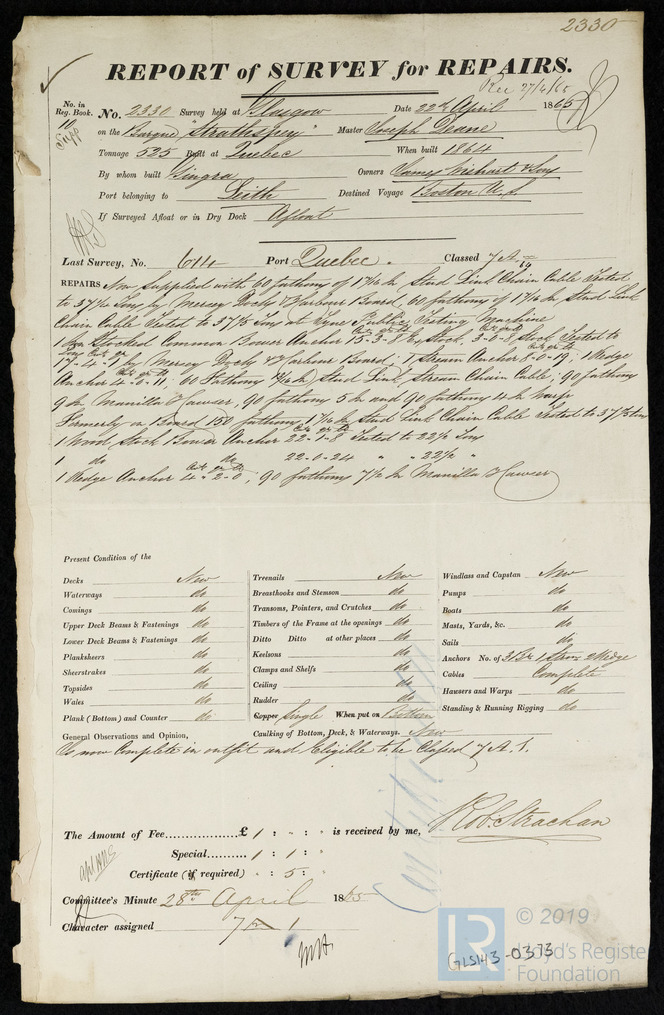 2330
REPORT of SURVEY for REPAIRS.
Rec 27/4/65
No. in Reg. Book.
No. 2330 Survey held at Glasgow Date 22nd April 1865
10 Supp
on the Barque "Strathspey" Master Joseph Deane
Tonnage 525 Built at Quebec When built 1864
By whom built Gingra Owners James Wishart & Son
Port belonging to Leith Destined Voyage Boston U.S
If Surveyed Afloat or in Dry Dock Afloat
Last Survey, No. 614 Port Quebec. Classed 7 A
REPAIRS Now Supplied with 60 fathoms of 17/16 In Stud Link Chain Cable Tested
to 37 Tons by Mersey Docks & Harbour Board, 60 fathoms of 1 7/16 In Stud Link
Chain Cable Tested to 37 Tons at Tyne Public Testing Machine
1 Stocked Common Bower Anchor 15-3-8 Ex Stock, 3-0-8 Stock Tested to
17-4-1 by Mersey Docks & Harbour Board; 1 Stream Anchor 8-0-19; 1 Kedge
Anchor 4-0-11; 60 Fathoms Stud Link Stream Chain Cable; 90 fathoms
9 In Manilla Hawser, 90 fathoms 5 In and 90 fathoms 4 In Warp
Formerly on Board 150 fathoms 1 7/16 In Stud Link Chain Cable Tested to 37 tons
1 Wood Stock Bower Anchor 22-1-8 Tested to 22½ Tons
1 do do 22-0-24 " " 22½ "
1 Kedge Anchor 4-2-0, 90 fathoms 7½ In Manilla Hawser
Present Condition of the
Decks New
Waterways do
Comings do
Upper Deck Beams & Fastenings do
Lower Deck Beams & Fastenings do
Planksheers do
Sheerstrakes do
Topsides do
Wales do
Plank (Bottom) and Counter do
Treenails New
Breasthooks and Stemson do
Transoms, Pointers, and Crutches do
Timbers of the Frame at the openings do
Ditto Ditto at other places do
Keelsons do
Clamps and Shelfs do
Ceiling do
Rudder do
Copper Single When put on Bottom
Caulking of Bottom, Deck, & Waterways. New
Windlass and Capstan New
Pumps do
Boats do
Masts, Yards, &c. do
Sails do
Anchors No. of 3 Br 1 Strm 2 Kedge
Cables Complete
Hawsers and Warps do
Standing & Running Rigging do
General Observations and Opinion,
Is now Complete in outfit and Eligible to be Classed 7 A. 1.
The Amount of Fee £ 1 : " : " is received by me,
Robt Strachan
Special 1 : 1 : "
Certificate (if required) " : 5 : "
Committee's Minute 28th April 1865
Character assigned 7 A 1
© 2019
LR
Lloyd's Register
Foundation
GLS143-0373